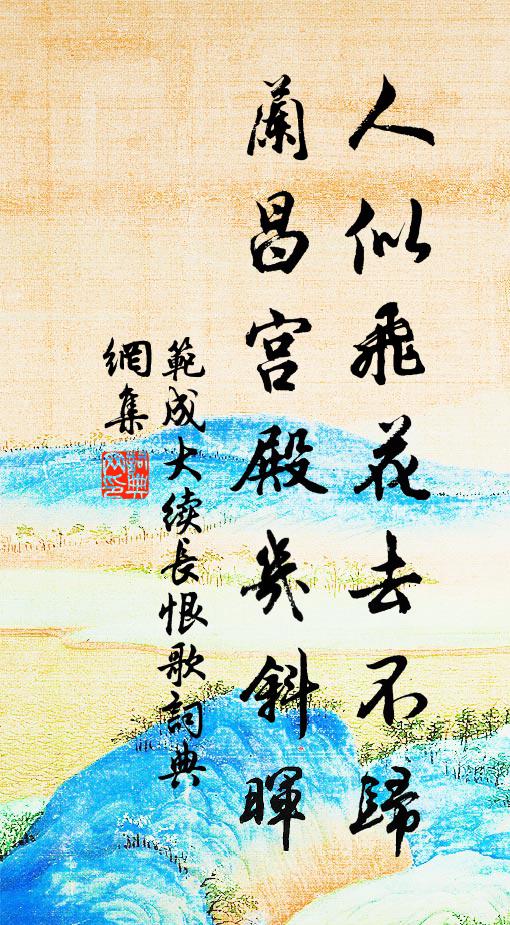 人似飛花去不歸
蘭昌宮殿幾斜暉
範成大續長恨歌詞典
網集
詞典